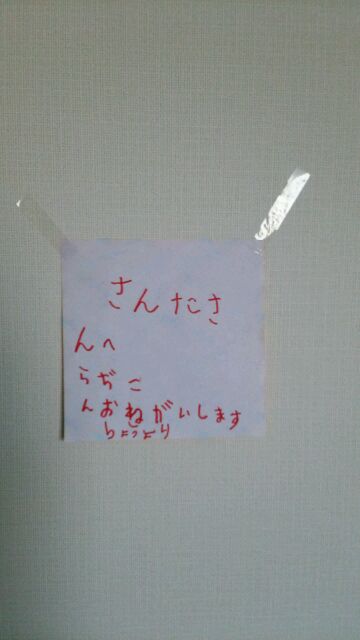 さんたさ
んへ
らぢこ
んおねがいします
りょうより